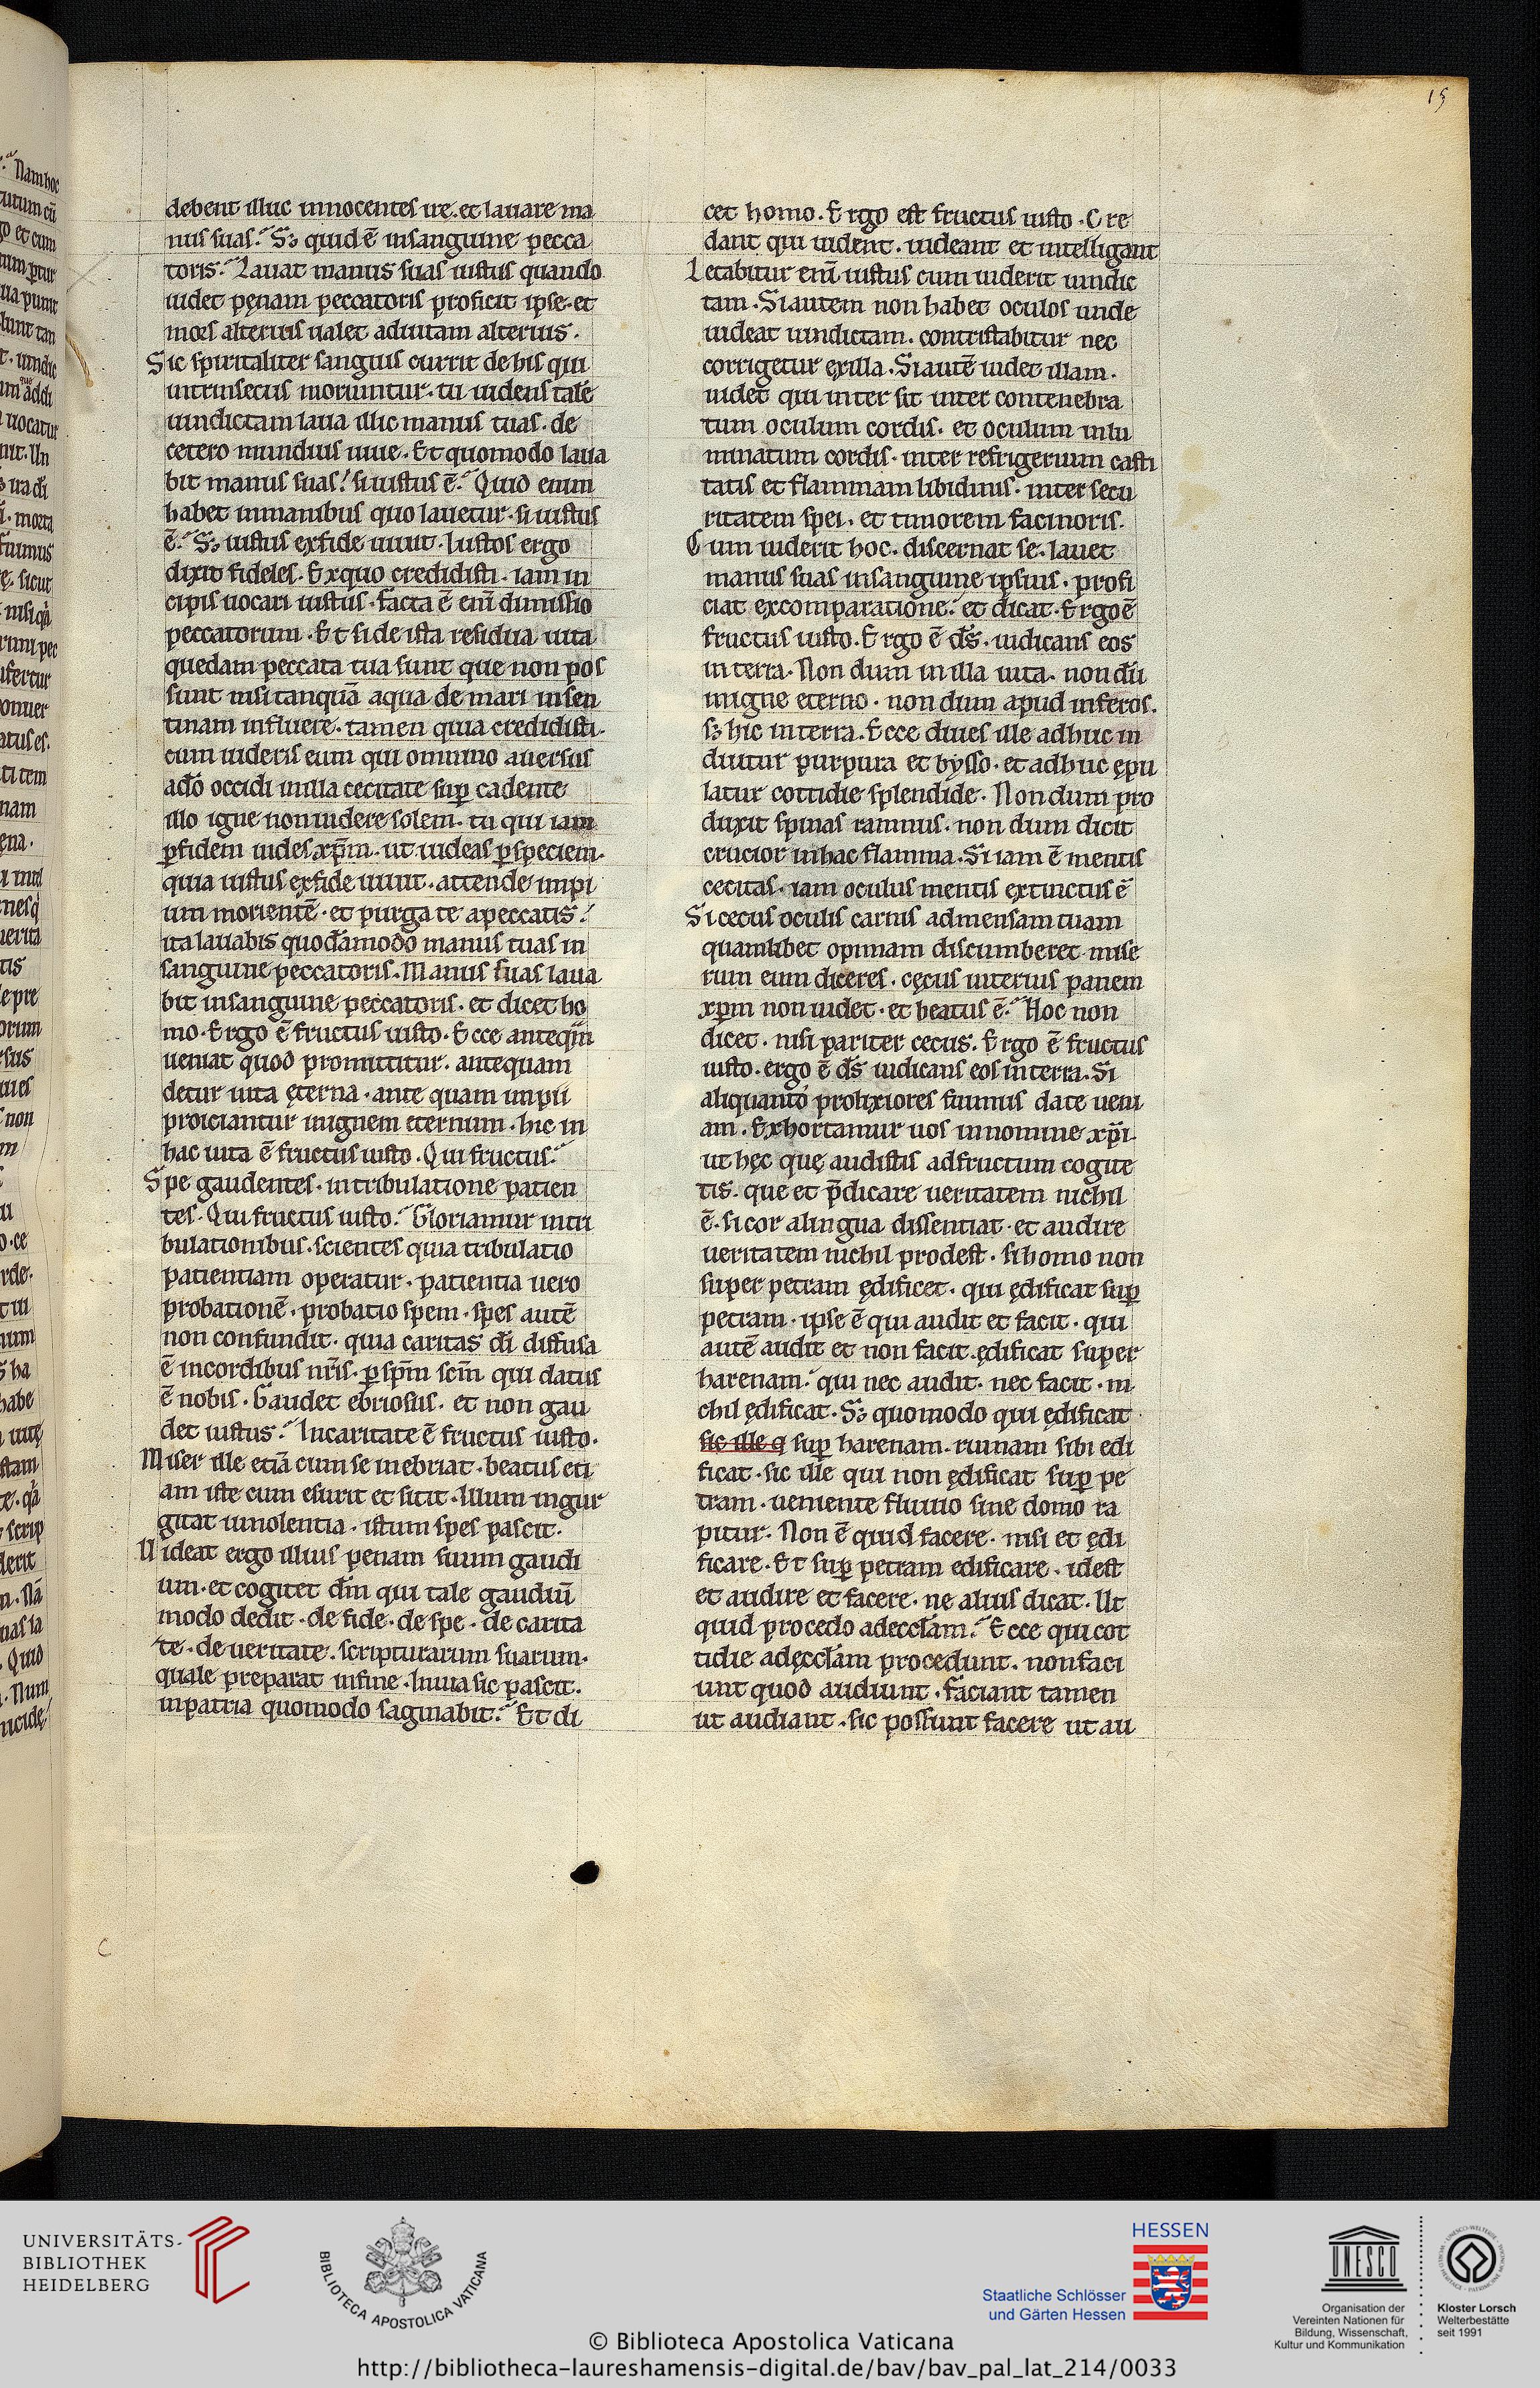 15
debent illuc innocentes ire. et lauare ma
nus suas? Sꝫ quid ē insanguine pecca
toris? Lauat manus suas iustus quando
uidet pęnam peccatoris proficit ipse. et
mors alterius ualet aduitam alterius.
Sic spiritaliter sanguis currit de his qui
intrinsecus moriuntur. tu uidens talē
uindictam laua illic manus tuas. de
cetero mundius uiue. Et quomodo laua
bit manus suas! si iustus ē? Quid enim
habet inmanibus quo lauetur. si iustus
ē? Sꝫ iustus exfide uiuit. Iustos ergo
dixit fideles. Exquo credidisti. iam in
cipis uocari iustus. facta ē eni dimissio
peccatorum. Et side ista residua uita
quedam peccata tua sunt que non pos
sunt nisi tanquā aqua de mari insen
tinam influere. tamen quia credidisti.
cum uideris eum qui omnino auersus
adō occidi inilla cecitate suꝑ cadente
illo igne non uidere solem. tu qui iam
ꝑfidem uides xp̄m. ut uideas ꝑspeciem.
quia iustus exfide uiuit. attende impi
um morientē. et purga te apeccatis!
ita lauabis quodāmodo manus tuas in
sanguine peccatoris. Manus suas laua
bit insanguine peccatoris. et dicet ho
mo. Ergo ē fructus iusto. Ecce anteqm̄
ueniat quod promittitur. antequam
detur uita ęterna. ante quam impii
proiciantur inignem eternum. hic in
hac uita ē fructus iusto. Qui fructus?
Spe gaudentes. intribulatione patien
tes. Qui fructus iusto? Gloriamur intri
bulationibus. scientes quia tribulatio
patientiam operatur. patientia uero
probationē. probatio spem. spes autē
non confundit. quia caritas di diffusa
ē incordibus nr̄is. ꝑ sp̄m scm̄ qui datus
ē nobis. Gaudet ebriosus. et non gau
det iustus? Incaritate ē fructus iusto.
Miser ille etiā cum se inebriat. beatus eti
am iste cum esurit et sitit. Illum ingur
gitat uinolentia. istum spes pascit.
Uideat ergo illius penam suum gaudi
um. et cogitet dm̄ qui tale gaudiū
modo dedit. de fide. de spe. de carita
te. de ueritate. scripturarum suarum.
quale preparat infine. Inuia sic pascit.
inpatria quomodo saginabit? Et di
cet homo. Ergo est fructus iusto. Cre
dant qui uident. uideant et intelligant
Letabitur eni iustus cum uiderit uindic
tam. Si autem non habet oculos unde
uideat uindictam. contristabitur nec
corrigetur exilla. Siautē uidet illam.
uidet qui inter sit inter contenebra
tum oculum cordis. et oculum inlu
minatum cordis. inter refrigerium casti
tatis et flammam libidinis. inter secu
ritatem spei. et timorem facinoris.
Cum uiderit hoc. discernat se. lauet
manus suas insanguine ipsius. profi
ciat excomparatione? et dicat. Ergo ē
fructus iusto. Ergo ē ds̄. iudicans eos
in terra. Non dum in illa uita. non dū
inigne eterno. non dum apud inferos.
sꝫ hic in terra. Ecce diues ille adhuc in
duitur purpura et bysso. et adhuc ępu
latur cottidie splendide. Nondum pro
duxit spinas ramnus. non dum dicit
crucior in hac flamma. Si iam ē mentis
cecitas. iam oculus mentis extinctus ē
Si cecus oculis carnis admensam tuam
quamlibet opimam discumberet mise
rum eum diceres. cęcus interius panem
xp̄m non uidet. et beatus ē? Hoc non
dicet. nisi pariter cecus. Ergo ē fructus
iusto. ergo ē ds̄ iudicans eos in terra. Si
aliquanto prolixiores fuimus date ueni
am. Exhortamur uos innomine xp̄i.
ut hęc quę audistis adfructum cogite
tis. que et p̄dicare ueritatem nichil
ē. si cor alingua dissentiat. et audire
ueritatem nichil prodest. sihomo non
super petram ędificet. qui ędificat suꝑ
petram. ipse ē qui audit et facit. qui
autē audit et non facit. ędificat super
harenam? qui nec audit. nec facit. ni
chil ędificat. Sꝫ quomodo qui ędificat
sic ille q suꝑ harenam. ruinam sibi edi
ficat. sic ille qui non ędificat suꝑ pe
tram. ueniente fluuio sine domo ra
pitur. Non ē quid facere. nisi et ędi
ficare. Et suꝑ petram edificare. idest
et audire et facere. ne alius dicat. Ut
quid procedo adeccl̄am? Ecce qui cot
tidie adęccl̄am procedunt. nonfaci
unt quod audiunt. faciant tamen
ut audiant. sic possunt facere ut au
UNIVERSITÄTS-
BIBLIOTHEK
HEIDELBERG
BIBLIOTECA APOSTOLICA VATICANA
HESSEN
Staatliche Schlösser
und Gärten Hessen
UNESCO
Organisation der
Vereinten Nationen für
Bildung, Wissenschaft,
Kultur und Kommunikation
Kloster Lorsch
Welterbestätte
seit 1991
© Biblioteca Apostolica Vaticana
http://bibliotheca-laureshamensis-digital.de/bav/bav_pal_lat_214/0033